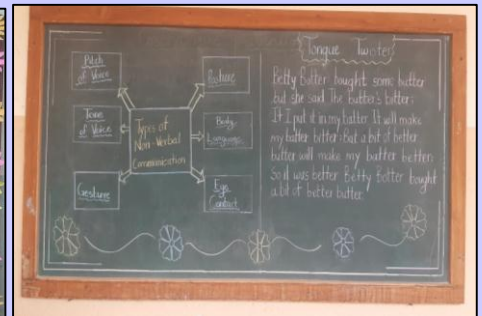 Pitch
of Voice
Tone
of Voice
Gesture
Types of
Non-Verbal
Communication
Posture
Body
Language
Eye
Contact
Tongue Twister
Betty Botter bought some butter
but she said The butter's bitter;
If I put it in my batter It will make
my batter bitter; But a bit of better
butter will make my batter better.
So it was better Betty Botter bought
a bit of better butter.